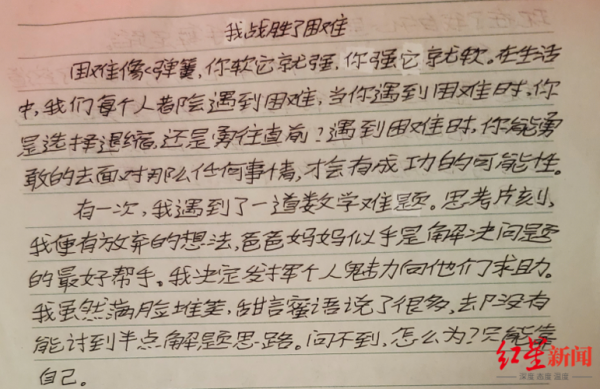 我战胜了困难
困难像弹簧,你软它就强,你强它就软。在生活
中,我们每个人都会遇到困难,当你遇到困难时,你
是选择退缩,还是勇往直前?遇到困难时,你能勇
敢的去面对那么任何事情,才会有成功的可能性。
有一次,我遇到了一道数学难题。思考片刻,
我便有放弃的想法,爸爸妈妈似乎是解决问题
的最好帮手。我决定发挥个人魅力向他们求助。
我虽然满脸堆笑,甜言蜜语说了很多,却没有
能讨到半点解题思路。问不到,怎么为?只能靠
自己。
红星新闻
深度 态度 温度